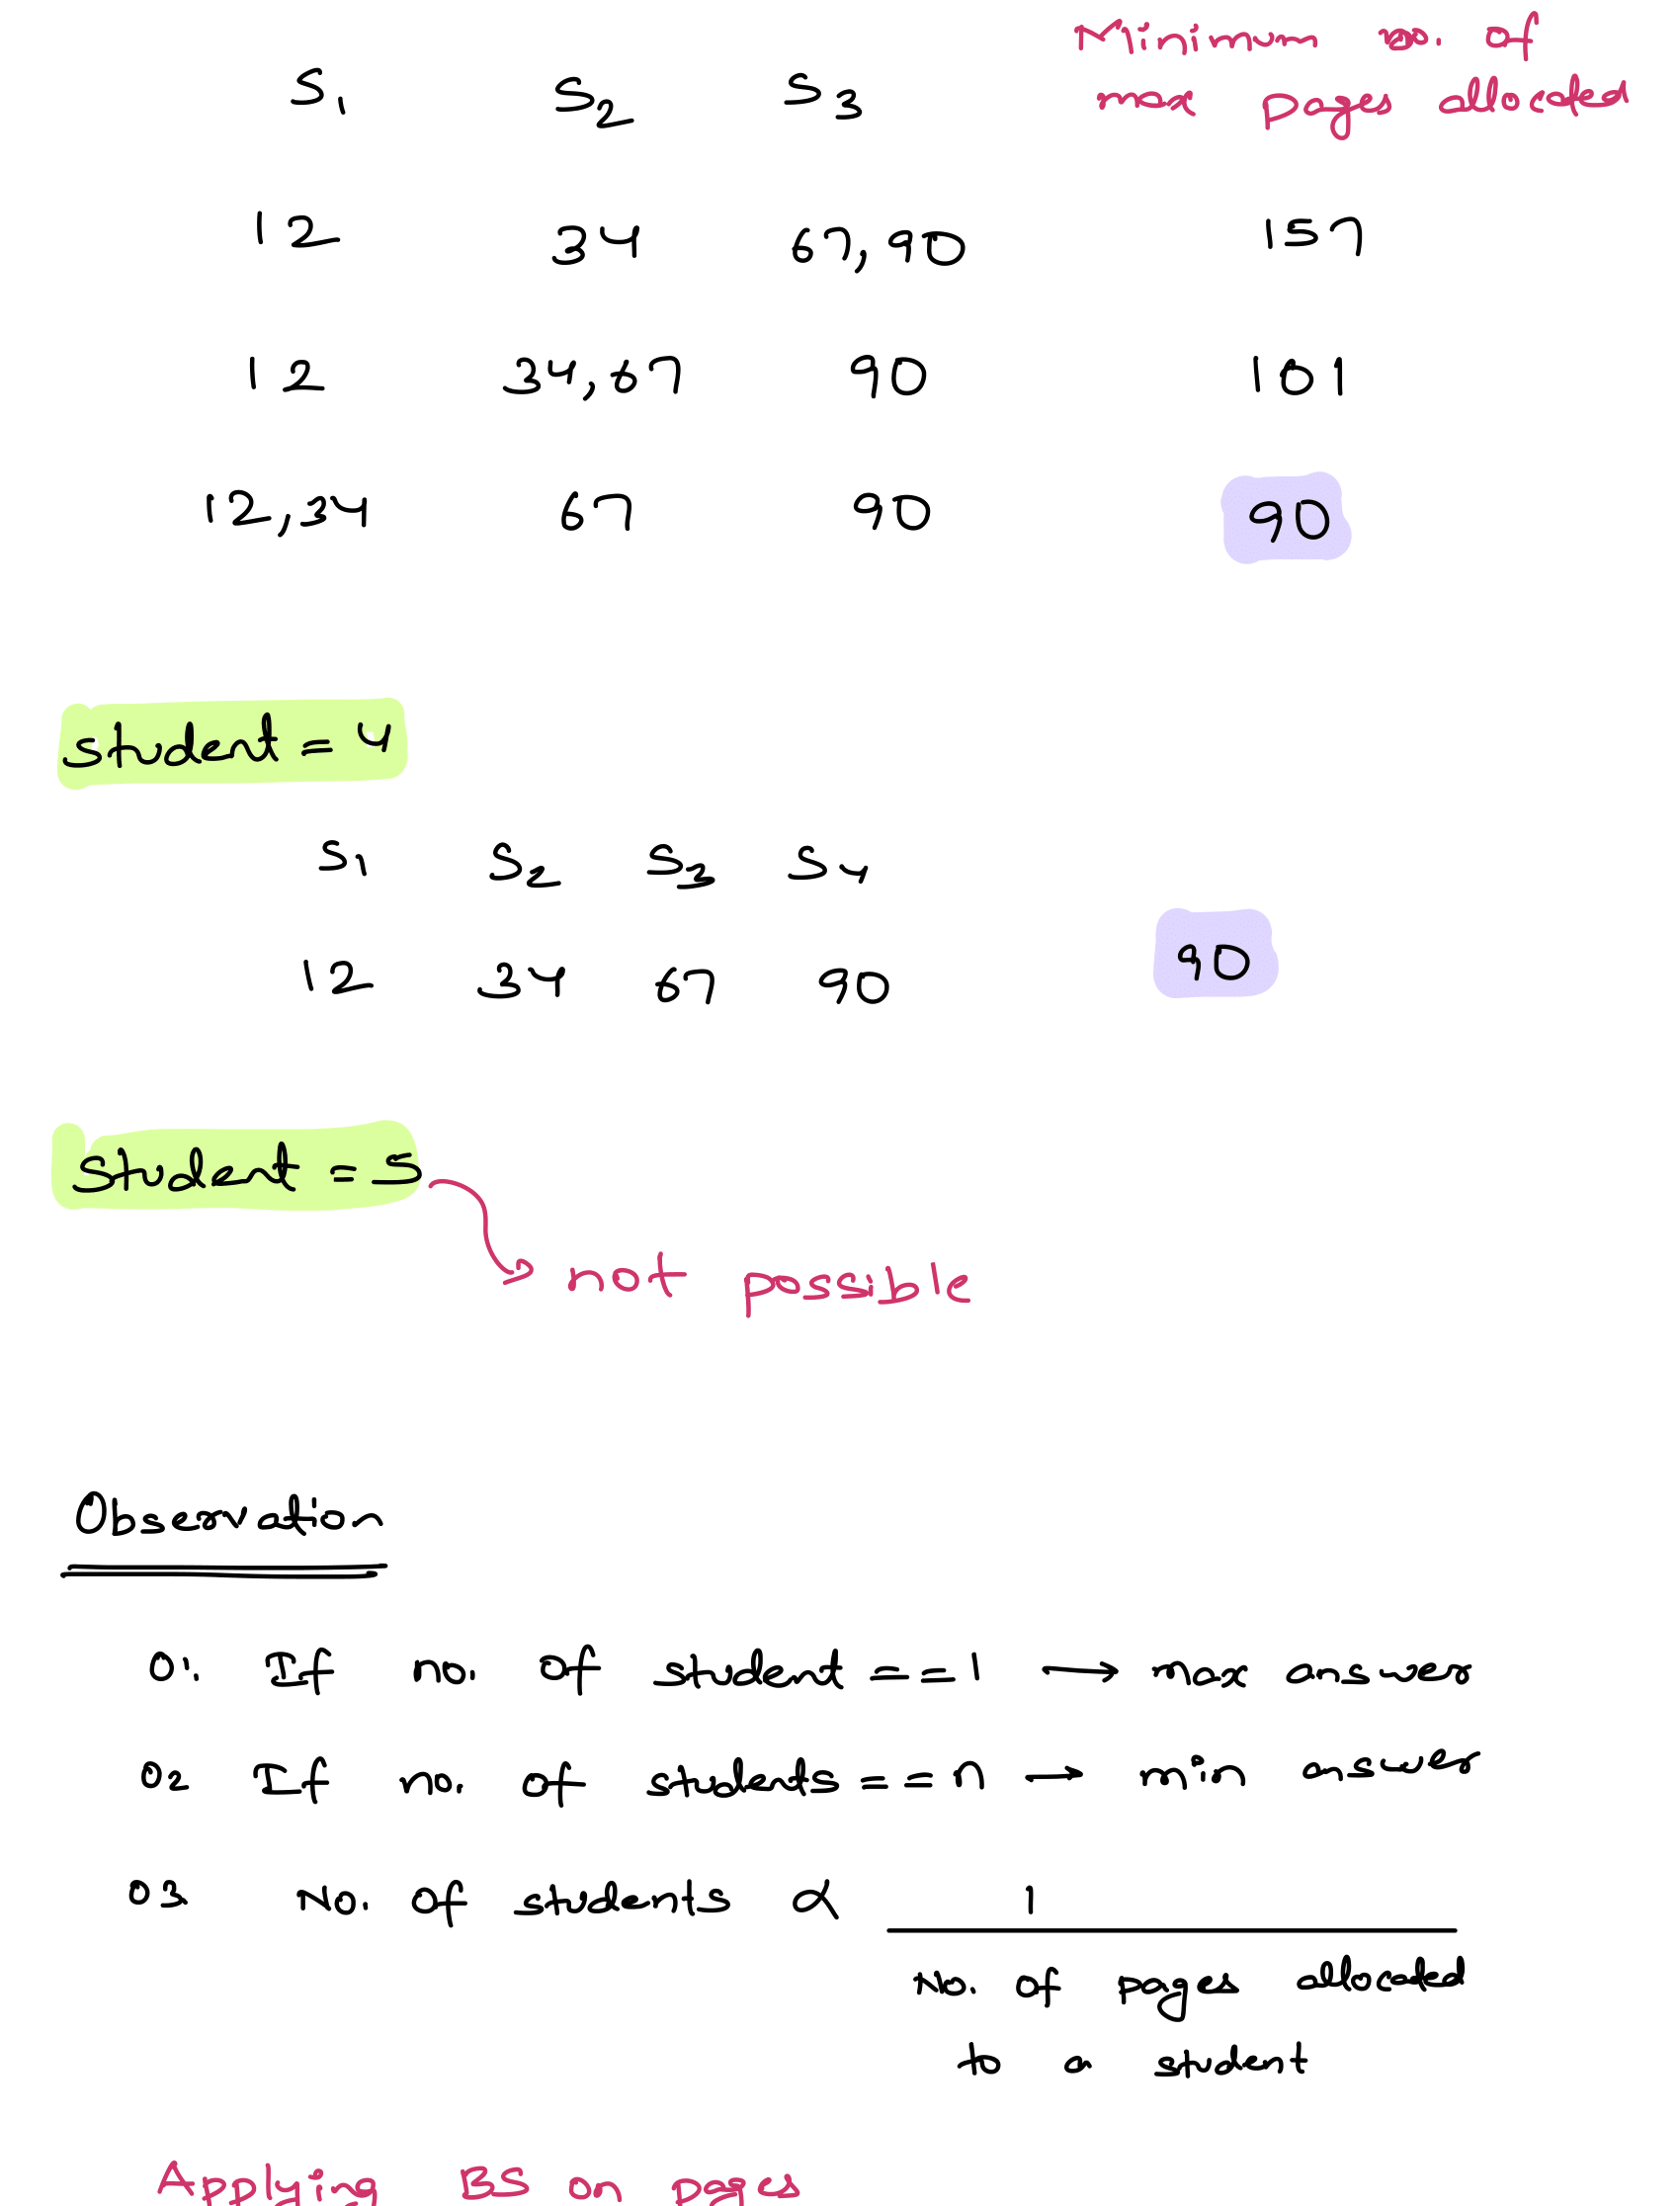 S1 S2 S3 Minimum no. of
max pages allocated
12 34 67,90 157
12 34,67 90 101
12,34 67 90 90
student = 4
S1 S2 S3 S4
12 34 67 90 90
student = 5
not possible
Observation
01. If no. of student == 1 → max answer
02 If no. of students == n → min answer
03 No. of students α 1
No. of pages allocated
to a student
Applying BS on pages